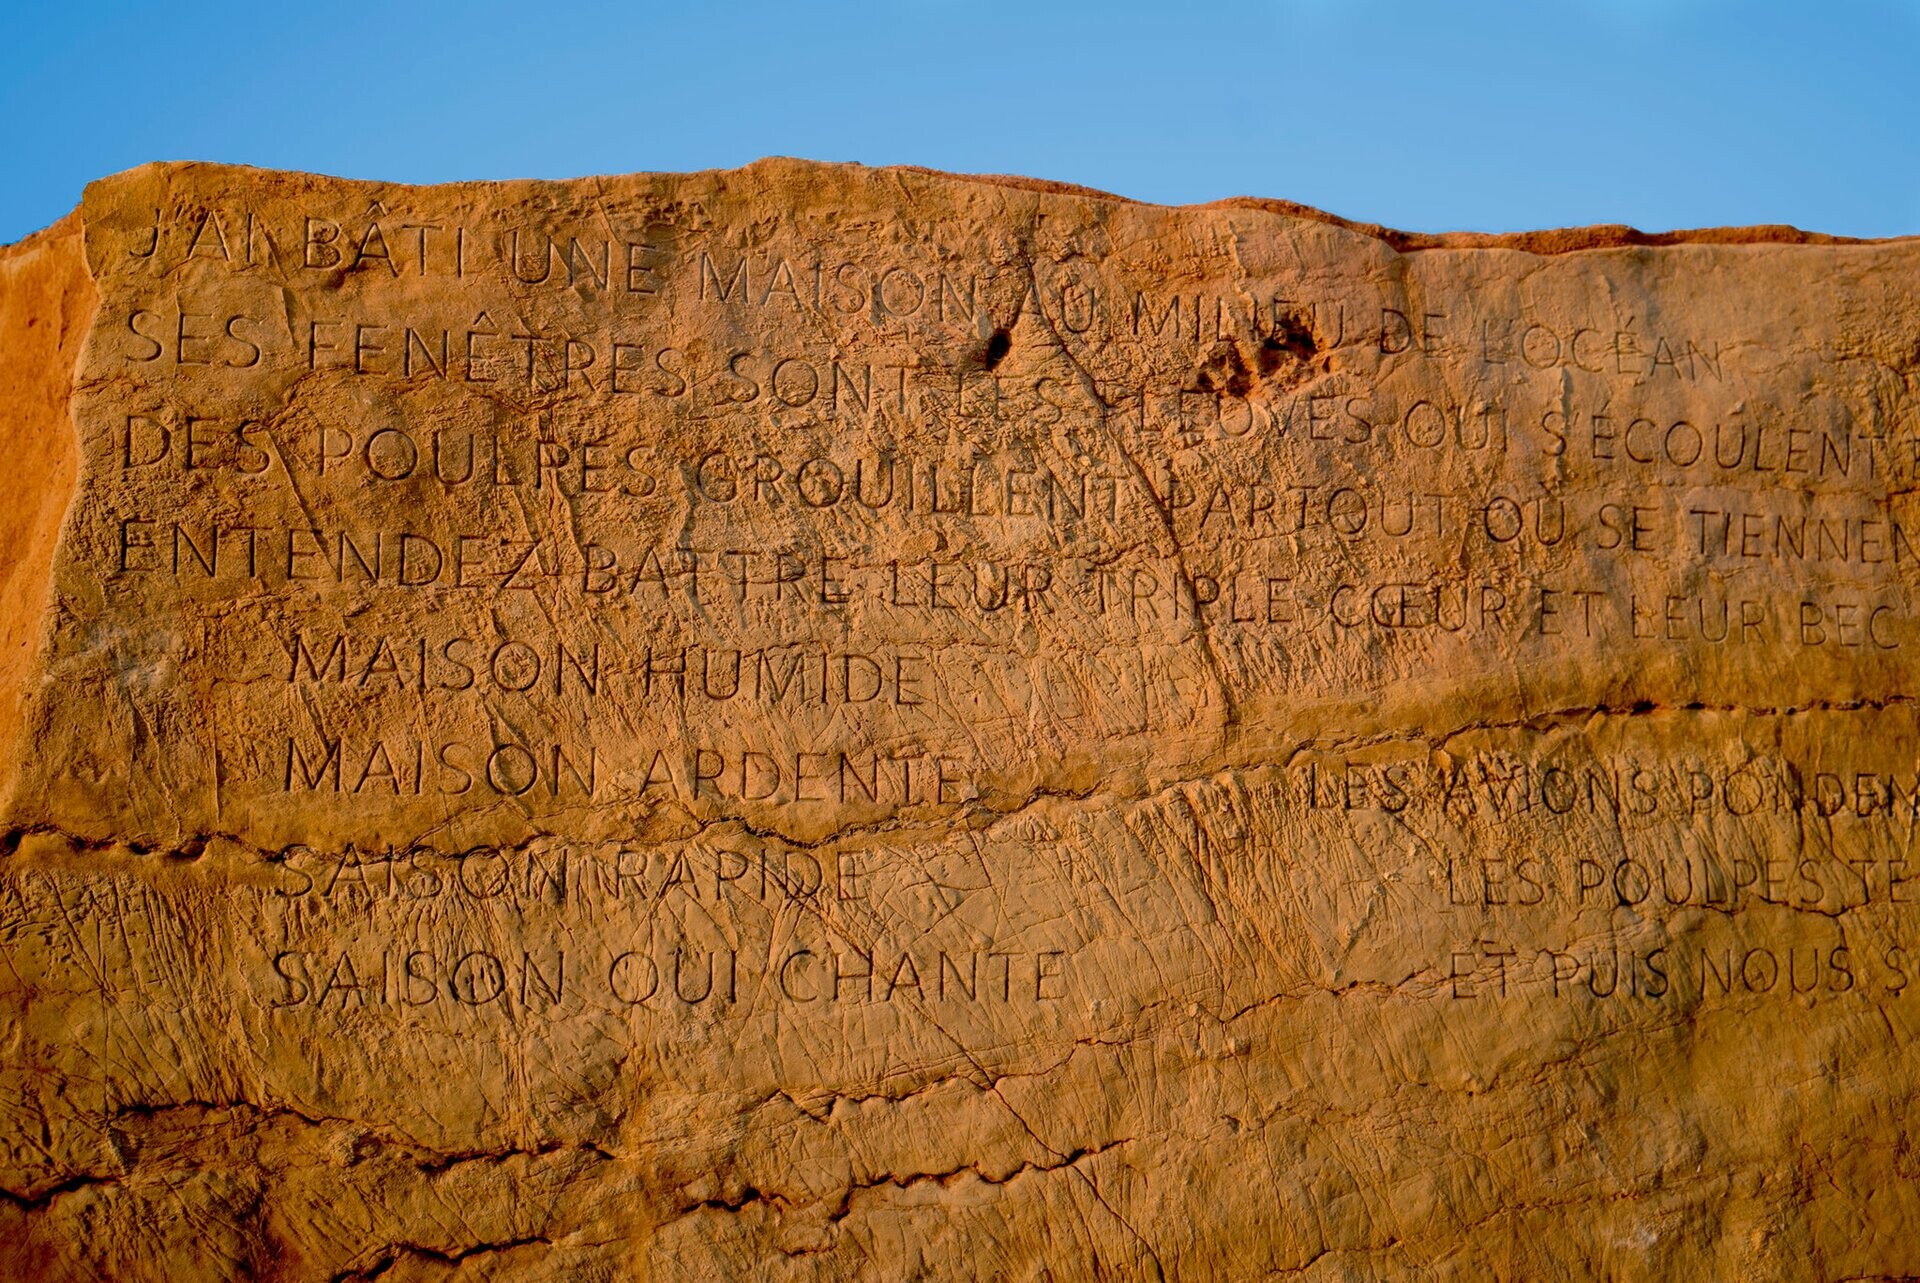 J'AI BÂTI UNE MAISON AU MILIEU DE L'OCÉAN
SES FENÊTRES SONT LES FLEUVES QUI S'ÉCOULENT
DES POULPES GROUILLENT PARTOUT OÙ SE TIENNEN
ENTENDEZ BATTRE LEUR TRIPLE CŒUR ET LEUR BEC
MAISON HUMIDE
MAISON ARDENTE
SAISON RAPIDE
SAISON QUI CHANTE
LES AVIONS PONDEN
LES POULPES TE
ET PUIS NOUS S